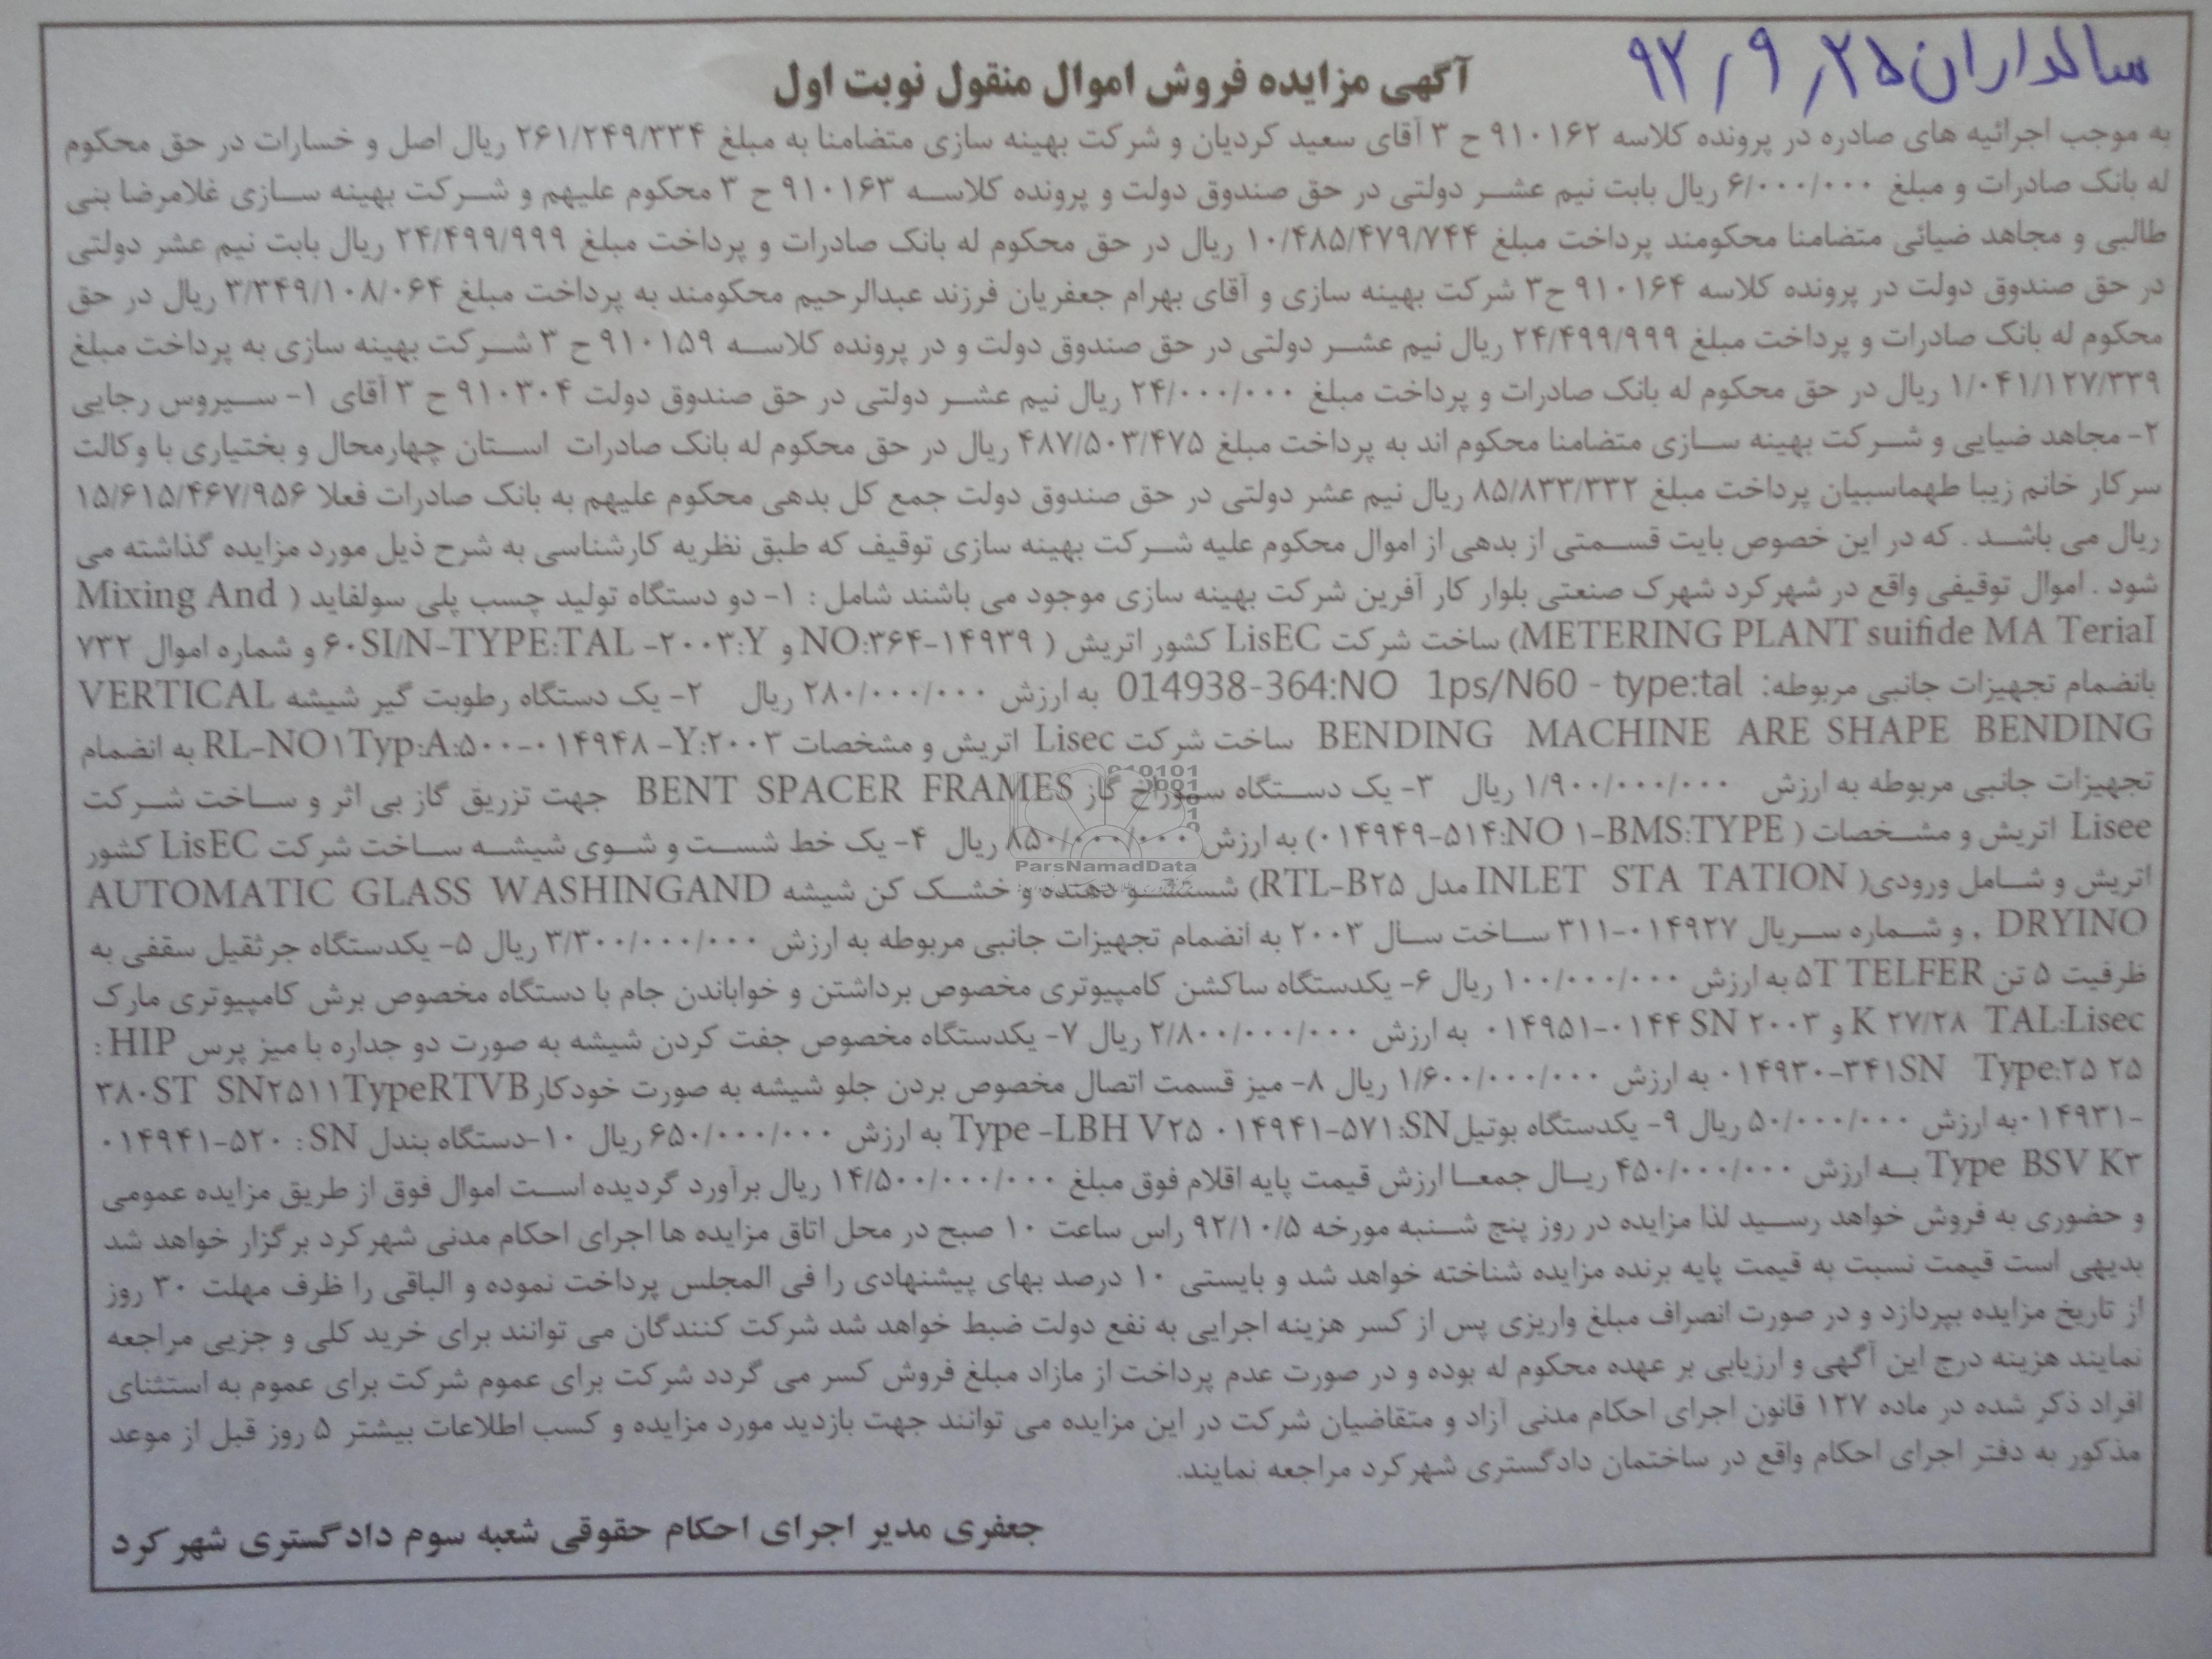 سالداران ۹۲/۹/۲۵
آگهی مزایده فروش اموال منقول نوبت اول
به موجب اجرائیه های صادره در پرونده کلاسه ۹۱۰۱۶۲ ح ۳ آقای سعید کردیان و شرکت بهینه سازی متضامنا به مبلغ ۲۶۱/۲۴۹/۳۳۴ ریال اصل و خسارات در حق محکوم
له بانک صادرات و مبلغ ۶/۰۰۰/۰۰۰ ریال بابت نیم عشر دولتی در حق صندوق دولت و پرونده کلاسه ۹۱۰۱۶۳ ح ۳ محکوم علیهم و شرکت بهینه سازی غلامرضا بنی
طالبی و مجاهد ضیائی متضامنا محکومند پرداخت مبلغ ۱۰/۴۸۵/۴۷۹/۷۴۴ ریال در حق محکوم له بانک صادرات و پرداخت مبلغ ۲۴/۴۹۹/۹۹۹ ریال بابت نیم عشر دولتی
در حق صندوق دولت در پرونده کلاسه ۹۱۰۱۶۴ ح۳ شرکت بهینه سازی و آقای بهرام جعفریان فرزند عبدالرحیم محکومند به پرداخت مبلغ ۳/۳۴۹/۱۰۸/۰۶۴ ریال در حق
محکوم له بانک صادرات و پرداخت مبلغ ۲۴/۴۹۹/۹۹۹ ریال نیم عشر دولتی در حق صندوق دولت و در پرونده کلاسه ۹۱۰۱۵۹ ح ۳ شرکت بهینه سازی به پرداخت مبلغ
۱/۰۴۱/۱۲۷/۳۳۹ ریال در حق محکوم له بانک صادرات و پرداخت مبلغ ۲۴/۰۰۰/۰۰۰ ریال نیم عشر دولتی در حق صندوق دولت ۹۱۰۳۰۴ ح ۳ آقای ۱- سیروس رجایی
۲- مجاهد ضیایی و شرکت بهینه سازی متضامنا محکوم اند به پرداخت مبلغ ۴۸۷/۵۰۳/۴۷۵ ریال در حق محکوم له بانک صادرات استان چهارمحال و بختیاری با وکالت
سرکار خانم زیبا طهماسبیان پرداخت مبلغ ۸۵/۸۳۳/۳۳۲ ریال نیم عشر دولتی در حق صندوق دولت جمع کل بدهی محکوم علیهم به بانک صادرات فعلا ۱۵/۶۱۵/۴۶۷/۹۵۶
ریال می باشد . که در این خصوص بایت قسمتی از بدهی از اموال محکوم علیه شرکت بهینه سازی توقیف که طبق نظریه کارشناسی به شرح ذیل مورد مزایده گذاشته می
شود . اموال توقیفی واقع در شهرکرد شهرک صنعتی بلوار کار آفرین شرکت بهینه سازی موجود می باشند شامل : ۱- دو دستگاه تولید چسب پلی سولفاید ( Mixing And
METERING PLANT suifide MA Terial) ساخت شرکت LisEC کشور اتریش ( ۱۴۹۳۹-۳۶۴:NO و ۶۰SI/N-TYPE:TAL -۲۰۰۳:Y و شماره اموال ۷۳۲
بانضمام تجهیزات جانبی مربوطه: 014938-364:NO 1ps/N60 - type:tal به ارزش ۲۸۰/۰۰۰/۰۰۰ ریال ۲- یک دستگاه رطوبت گیر شیشه VERTICAL
BENDING MACHINE ARE SHAPE BENDING ساخت شرکت Lisec اتریش و مشخصات RL-NO۱Typ:A:۵۰۰-۰۱۴۹۴۸ -Y:۲۰۰۳ به انضمام
تجهیزات جانبی مربوطه به ارزش ۱/۹۰۰/۰۰۰/۰۰۰ ریال ۳- یک دستگاه سوراخ گاز BENT SPACER FRAMES جهت تزریق گاز بی اثر و ساخت شرکت
Lisee اتریش و مشخصات ( ۰۱۴۹۴۹-۵۱۴:NO ۱-BMS:TYPE) به ارزش ۸۵۰/۰۰۰/۰۰۰ ریال ۴- یک خط شست و شوی شیشه ساخت شرکت LisEC کشور
اتریش و شامل ورودی( INLET STA TATION مدل RTL-B۲۵) شستشو دهنده و خشک کن شیشه AUTOMATIC GLASS WASHINGAND
DRYINO . و شماره سریال ۰۱۴۹۲۷-۳۱۱ ساخت سال ۲۰۰۳ به انضمام تجهیزات جانبی مربوطه به ارزش ۳/۳۰۰/۰۰۰/۰۰۰ ریال ۵- یکدستگاه جرثقیل سقفی به
ظرفیت ۵ تن ۵T TELFER به ارزش ۱۰۰/۰۰۰/۰۰۰ ریال ۶- یکدستگاه ساکشن کامپیوتری مخصوص برداشتن و خواباندن جام با دستگاه مخصوص برش کامپیوتری مارک
K ۲۷/۲۸ TAL:Lisec و ۰۱۴۹۵۱-۰۱۴۴ SN ۲۰۰۳ به ارزش ۲/۸۰۰/۰۰۰/۰۰۰ ریال ۷- یکدستگاه مخصوص جفت کردن شیشه به صورت دو جداره با میز پرس HIP :
۰۱۴۹۳۰-۳۴۱SN Type:۲۵ ۲۵ به ارزش ۱/۶۰۰/۰۰۰/۰۰۰ ریال ۸- میز قسمت اتصال مخصوص بردن جلو شیشه به صورت خودکار ۳۸۰ST SN۲۵۱۱TypeRTVB
-۰۱۴۹۳۱به ارزش ۵۰/۰۰۰/۰۰۰ ریال ۹- یکدستگاه بوتیل Type -LBH V۲۵ ۰۱۴۹۴۱-۵۷۱:SN به ارزش ۶۵۰/۰۰۰/۰۰۰ ریال ۱۰-دستگاه بندل SN : ۰۱۴۹۴۱-۵۲۰
Type BSV K۳ به ارزش ۴۵۰/۰۰۰/۰۰۰ ریال جمعا ارزش قیمت پایه اقلام فوق مبلغ ۱۴/۵۰۰/۰۰۰/۰۰۰ ریال برآورد گردیده است اموال فوق از طریق مزایده عمومی
و حضوری به فروش خواهد رسید لذا مزایده در روز پنج شنبه مورخه ۹۲/۱۰/۵ راس ساعت ۱۰ صبح در محل اتاق مزایده ها اجرای احکام مدنی شهرکرد برگزار خواهد شد
بدیهی است قیمت نسبت به قیمت پایه برنده مزایده شناخته خواهد شد و بایستی ۱۰ درصد بهای پیشنهادی را فی المجلس پرداخت نموده و الباقی را ظرف مهلت ۳۰ روز
از تاریخ مزایده بپردازد و در صورت انصراف مبلغ واریزی پس از کسر هزینه اجرایی به نفع دولت ضبط خواهد شد شرکت کنندگان می توانند برای خرید کلی و جزیی مراجعه
نمایند هزینه درج این آگهی و ارزیابی بر عهده محکوم له بوده و در صورت عدم پرداخت از مازاد مبلغ فروش کسر می گردد شرکت برای عموم شرکت برای عموم به استثنای
افراد ذکر شده در ماده ۱۲۷ قانون اجرای احکام مدنی آزاد و متقاضیان شرکت در این مزایده می توانند جهت بازدید مورد مزایده و کسب اطلاعات بیشتر ۵ روز قبل از موعد
مذکور به دفتر اجرای احکام واقع در ساختمان دادگستری شهرکرد مراجعه نمایند.
جعفری مدیر اجرای احکام حقوقی شعبه سوم دادگستری شهرکرد
ParsNamadData